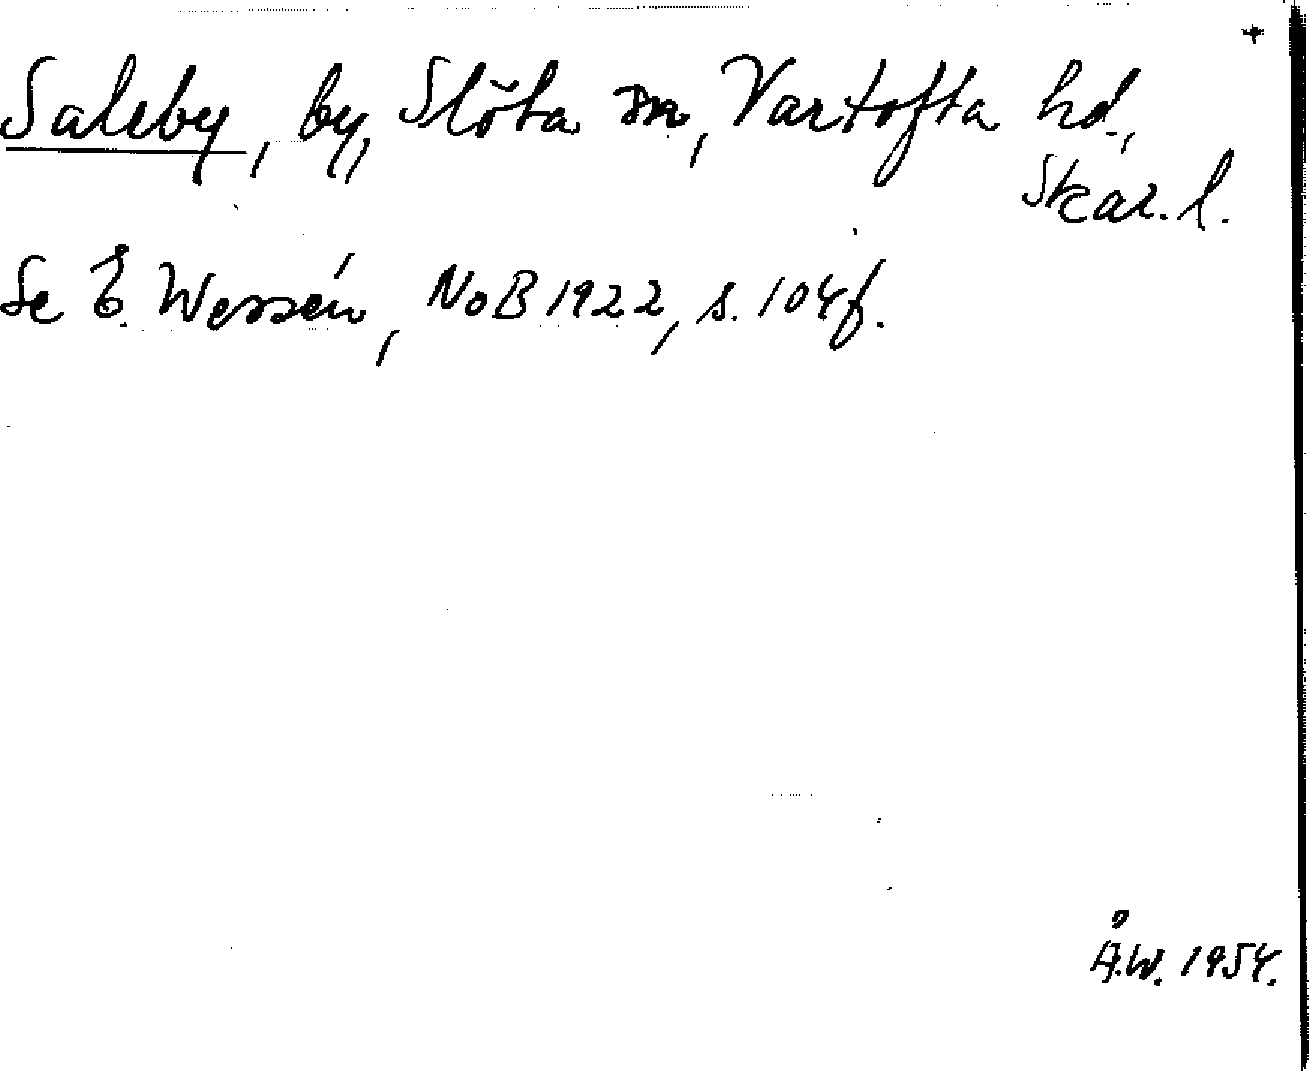 +
Saleby, by, Slöta sn, Vartofta hd.,
Skar. l.
Se E. Wessén, NoB 1922, s. 104f.
Å.W. 1954.